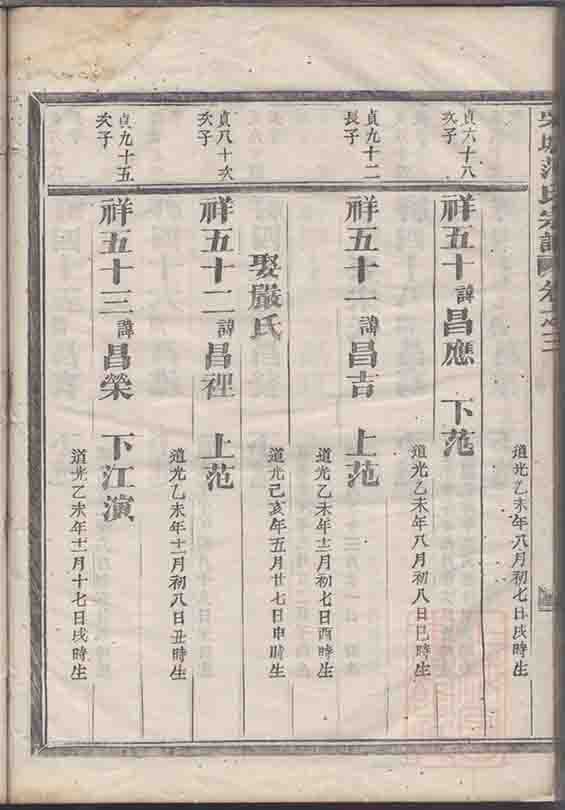 范氏宗譜 卷之三
道光乙未年八月初七日戌時生
貞六十八
次子
祥五十 諱昌應 下范
道光乙未年八月初八日巳時生
貞九十二
長子
祥五十一 諱昌吉 上范
道光乙未年十二月初七日酉時生
娶嚴氏
道光己亥年五月廿七日申時生
貞八十次
次子
祥五十二 諱昌裡 上范
道光乙未年十一月初八日丑時生
貞九十五
次子
祥五十三 諱昌榮 下江演
道光乙未年十二月十七日戌時生